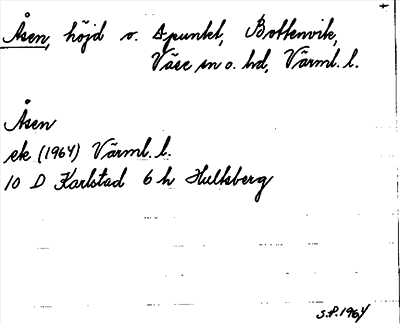 Åsen, höjd o. △punkt, Bottenvik,
Väse sn o. hd, Värml. l.
Åsen
ek (1964) Värml. l.
10 D Karlstad 6 h Hultsberg
S.P. 1964